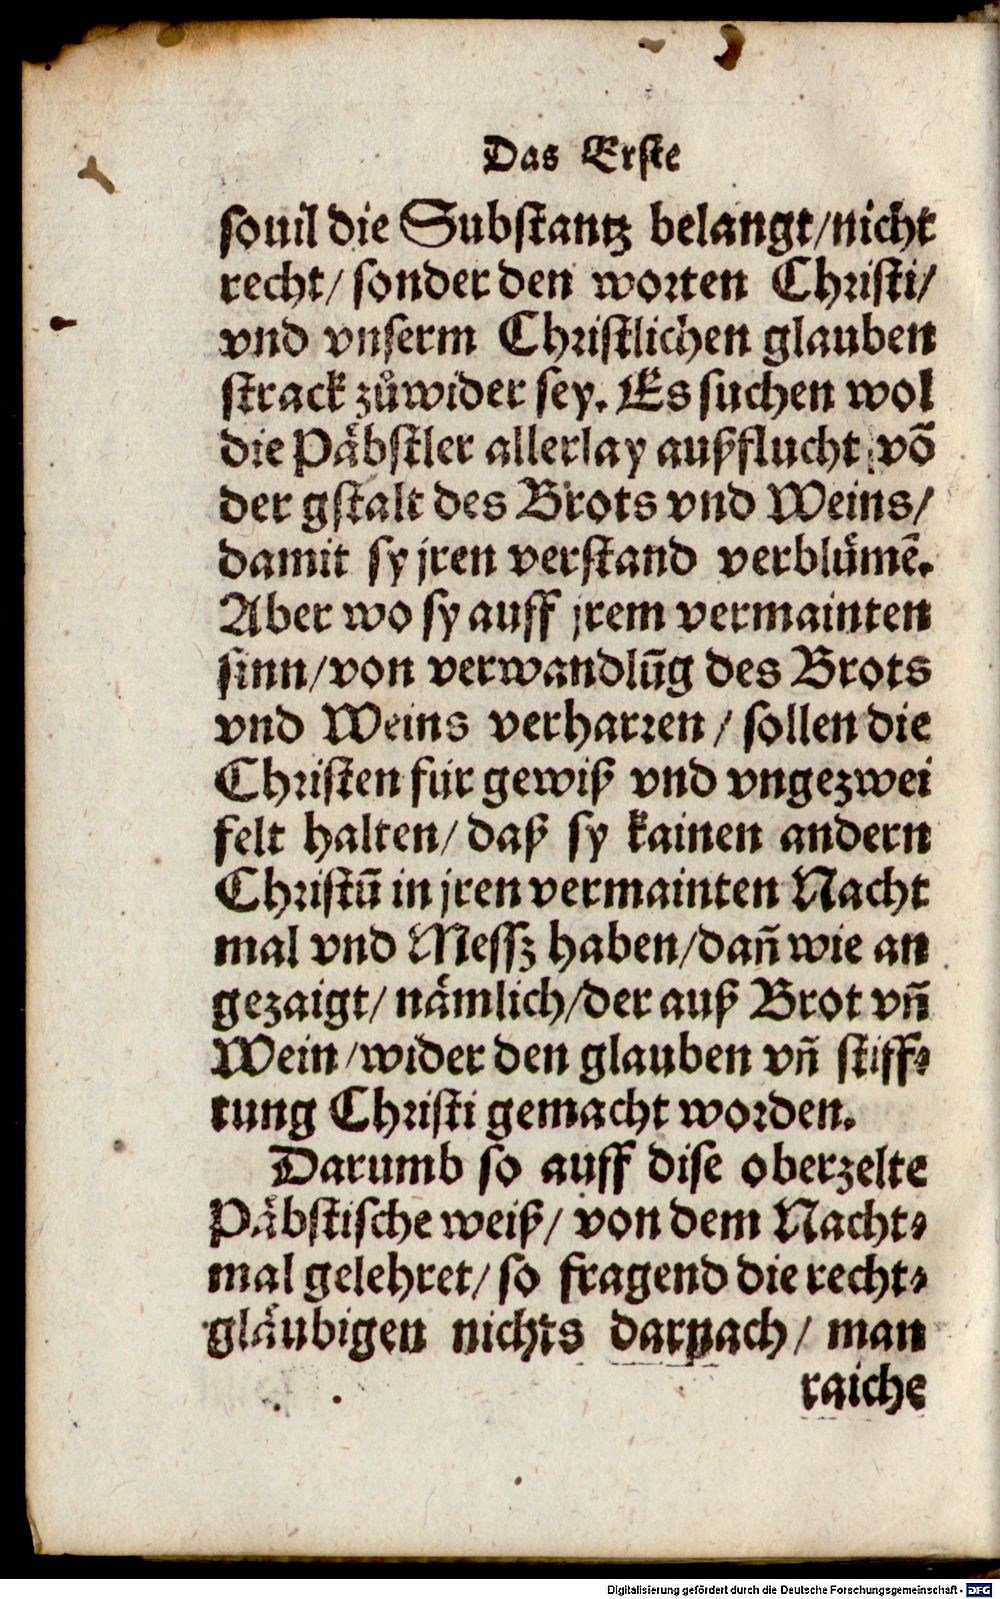 Das Erste
souil die Substantz belangt/nicht
recht/ sonder den worten Christi/
vnd vnserm Christlichen glauben
strack zůwider sey. Es suchen wol
die Päbstler allerlay außflucht/võ
der gstalt des Brots vnd Weins/
damit sy jren verstand verblümẽ.
Aber wo sy auff jrem vermainten
sinn/von verwandlũg des Brots
vnd Weins verharren/ sollen die
Christen für gewiß vnd vngezwei
felt halten/ daß sy kainen andern
Christũ in jren vermainten Nacht
mal vnd Messz haben/dañ wie an
gezaigt/ nämlich/der auß Brot vñ
Wein/wider den glauben vñ stiff⸗
tung Christi gemacht worden.
Darumb so auff dise oberzelte
Päbstische weiß/ von dem Nacht⸗
mal gelehret/ so fragend die recht⸗
gläubigen nichts darnach/ man
raiche
Digitalisierung gefördert durch die Deutsche Forschungsgemeinschaft - DFG